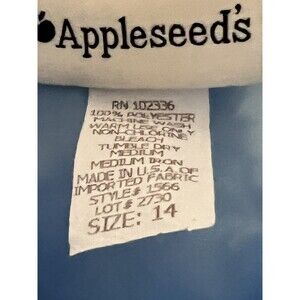 Appleseed's
RN 102336
100% POLYESTER
MACHINE WASH
WARM LESS ONLY
NON-CHLORINE
BLEACH
TUMBLE DRY
MEDIUM
MEDIUM IRON
MADE IN U.S.A. OF
IMPORTED FABRIC
STYLE # 1566
LOT # 2730
SIZE: 14